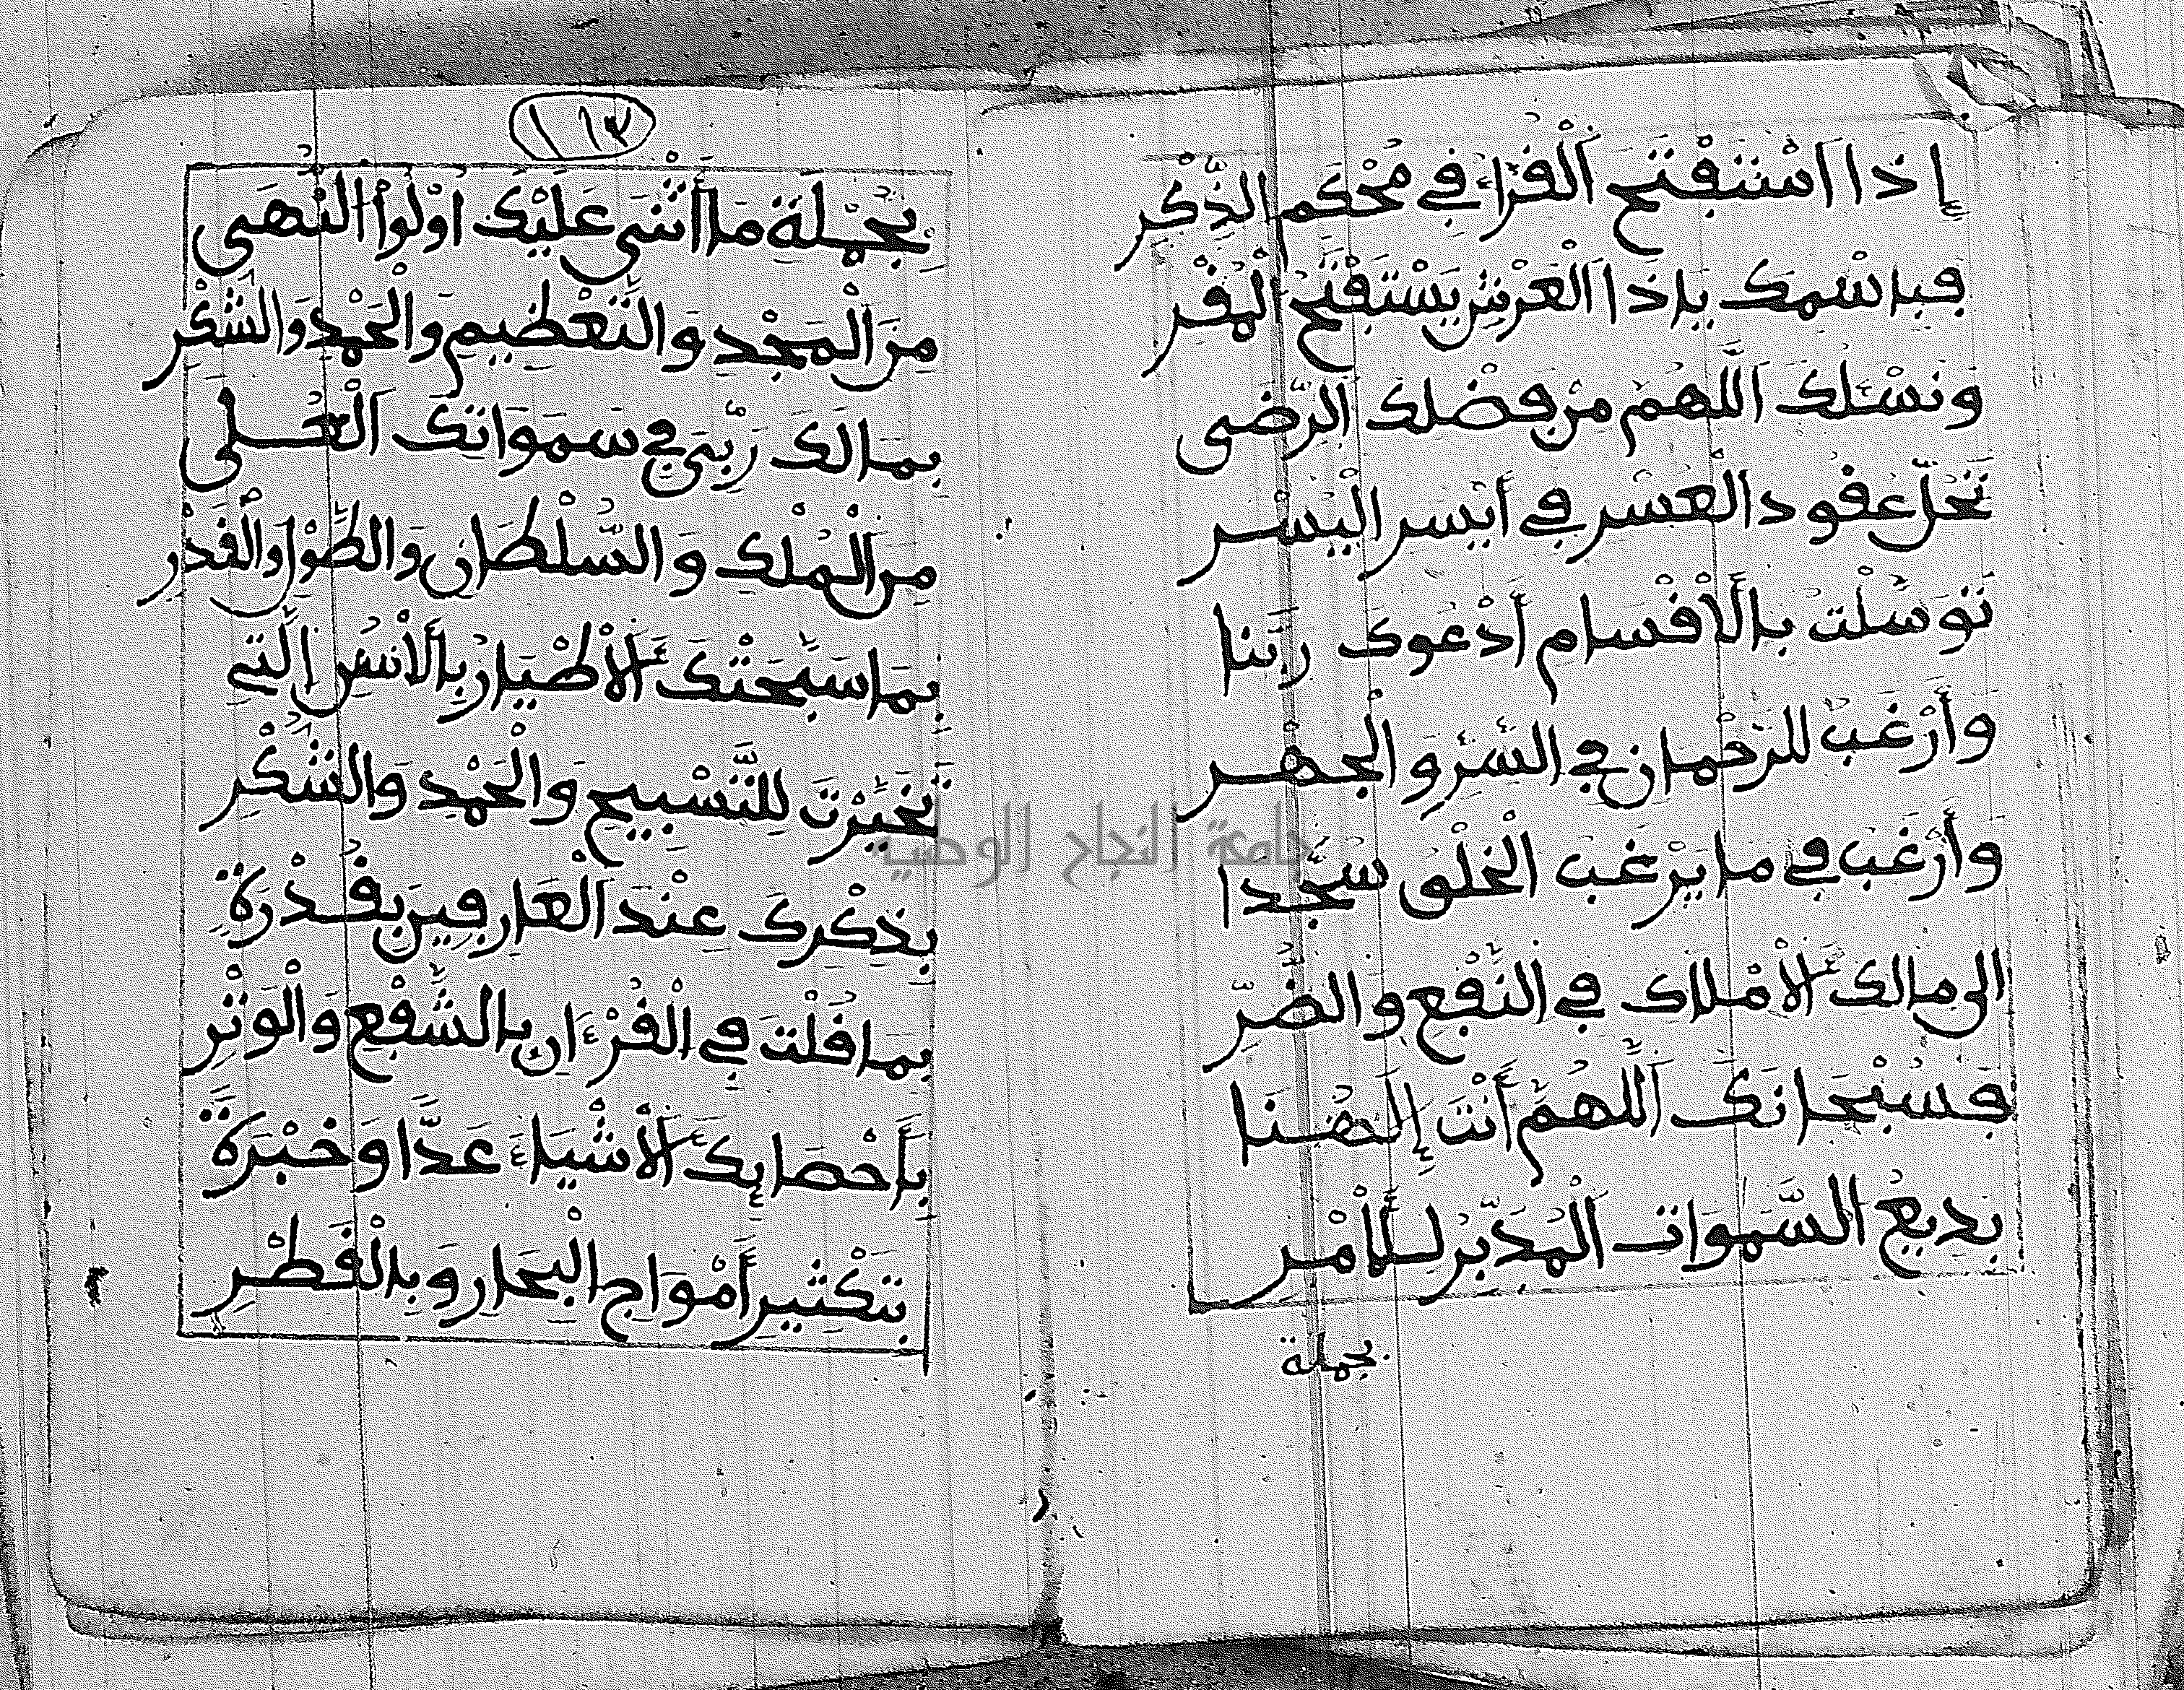 إذا استفتح القراء في محكم الذكر
فباسمك ياذا العرش يستفتح المقر
ونسئلك اللهم من فضلك الرضى
تحل عقود العسر في أيسر اليسر
توسلت بالأقسام أدعوك ربنا
وأرغب للرحمان في السر والجهر
وأرغب في ما يرغب الخلق سجدا
الى مالك الأملاك في النفع والضر
فسبحانك اللهم أنت إلهنا
بديع السموات المدبر للأمر
بجملة
١١٣
بجملة ما أثنى عليك اولوا النهى
من المجد والتعظيم والحمد والشكر
بمالك ربي في سمواتك العلى
من الملك والسلطان والطول والقدر
بما سبحتك الأطيار بالأنس التي
تخيرت للتسبيح والحمد والشكر
بذكرك عند العارفين بقدرة
بما قلت في القرءان بالشفع والوتر
بأحصايك الأشياء عدا وخبرة
بتكثير أمواج البحار وبالقطر
جامعة النجاح الوطنية